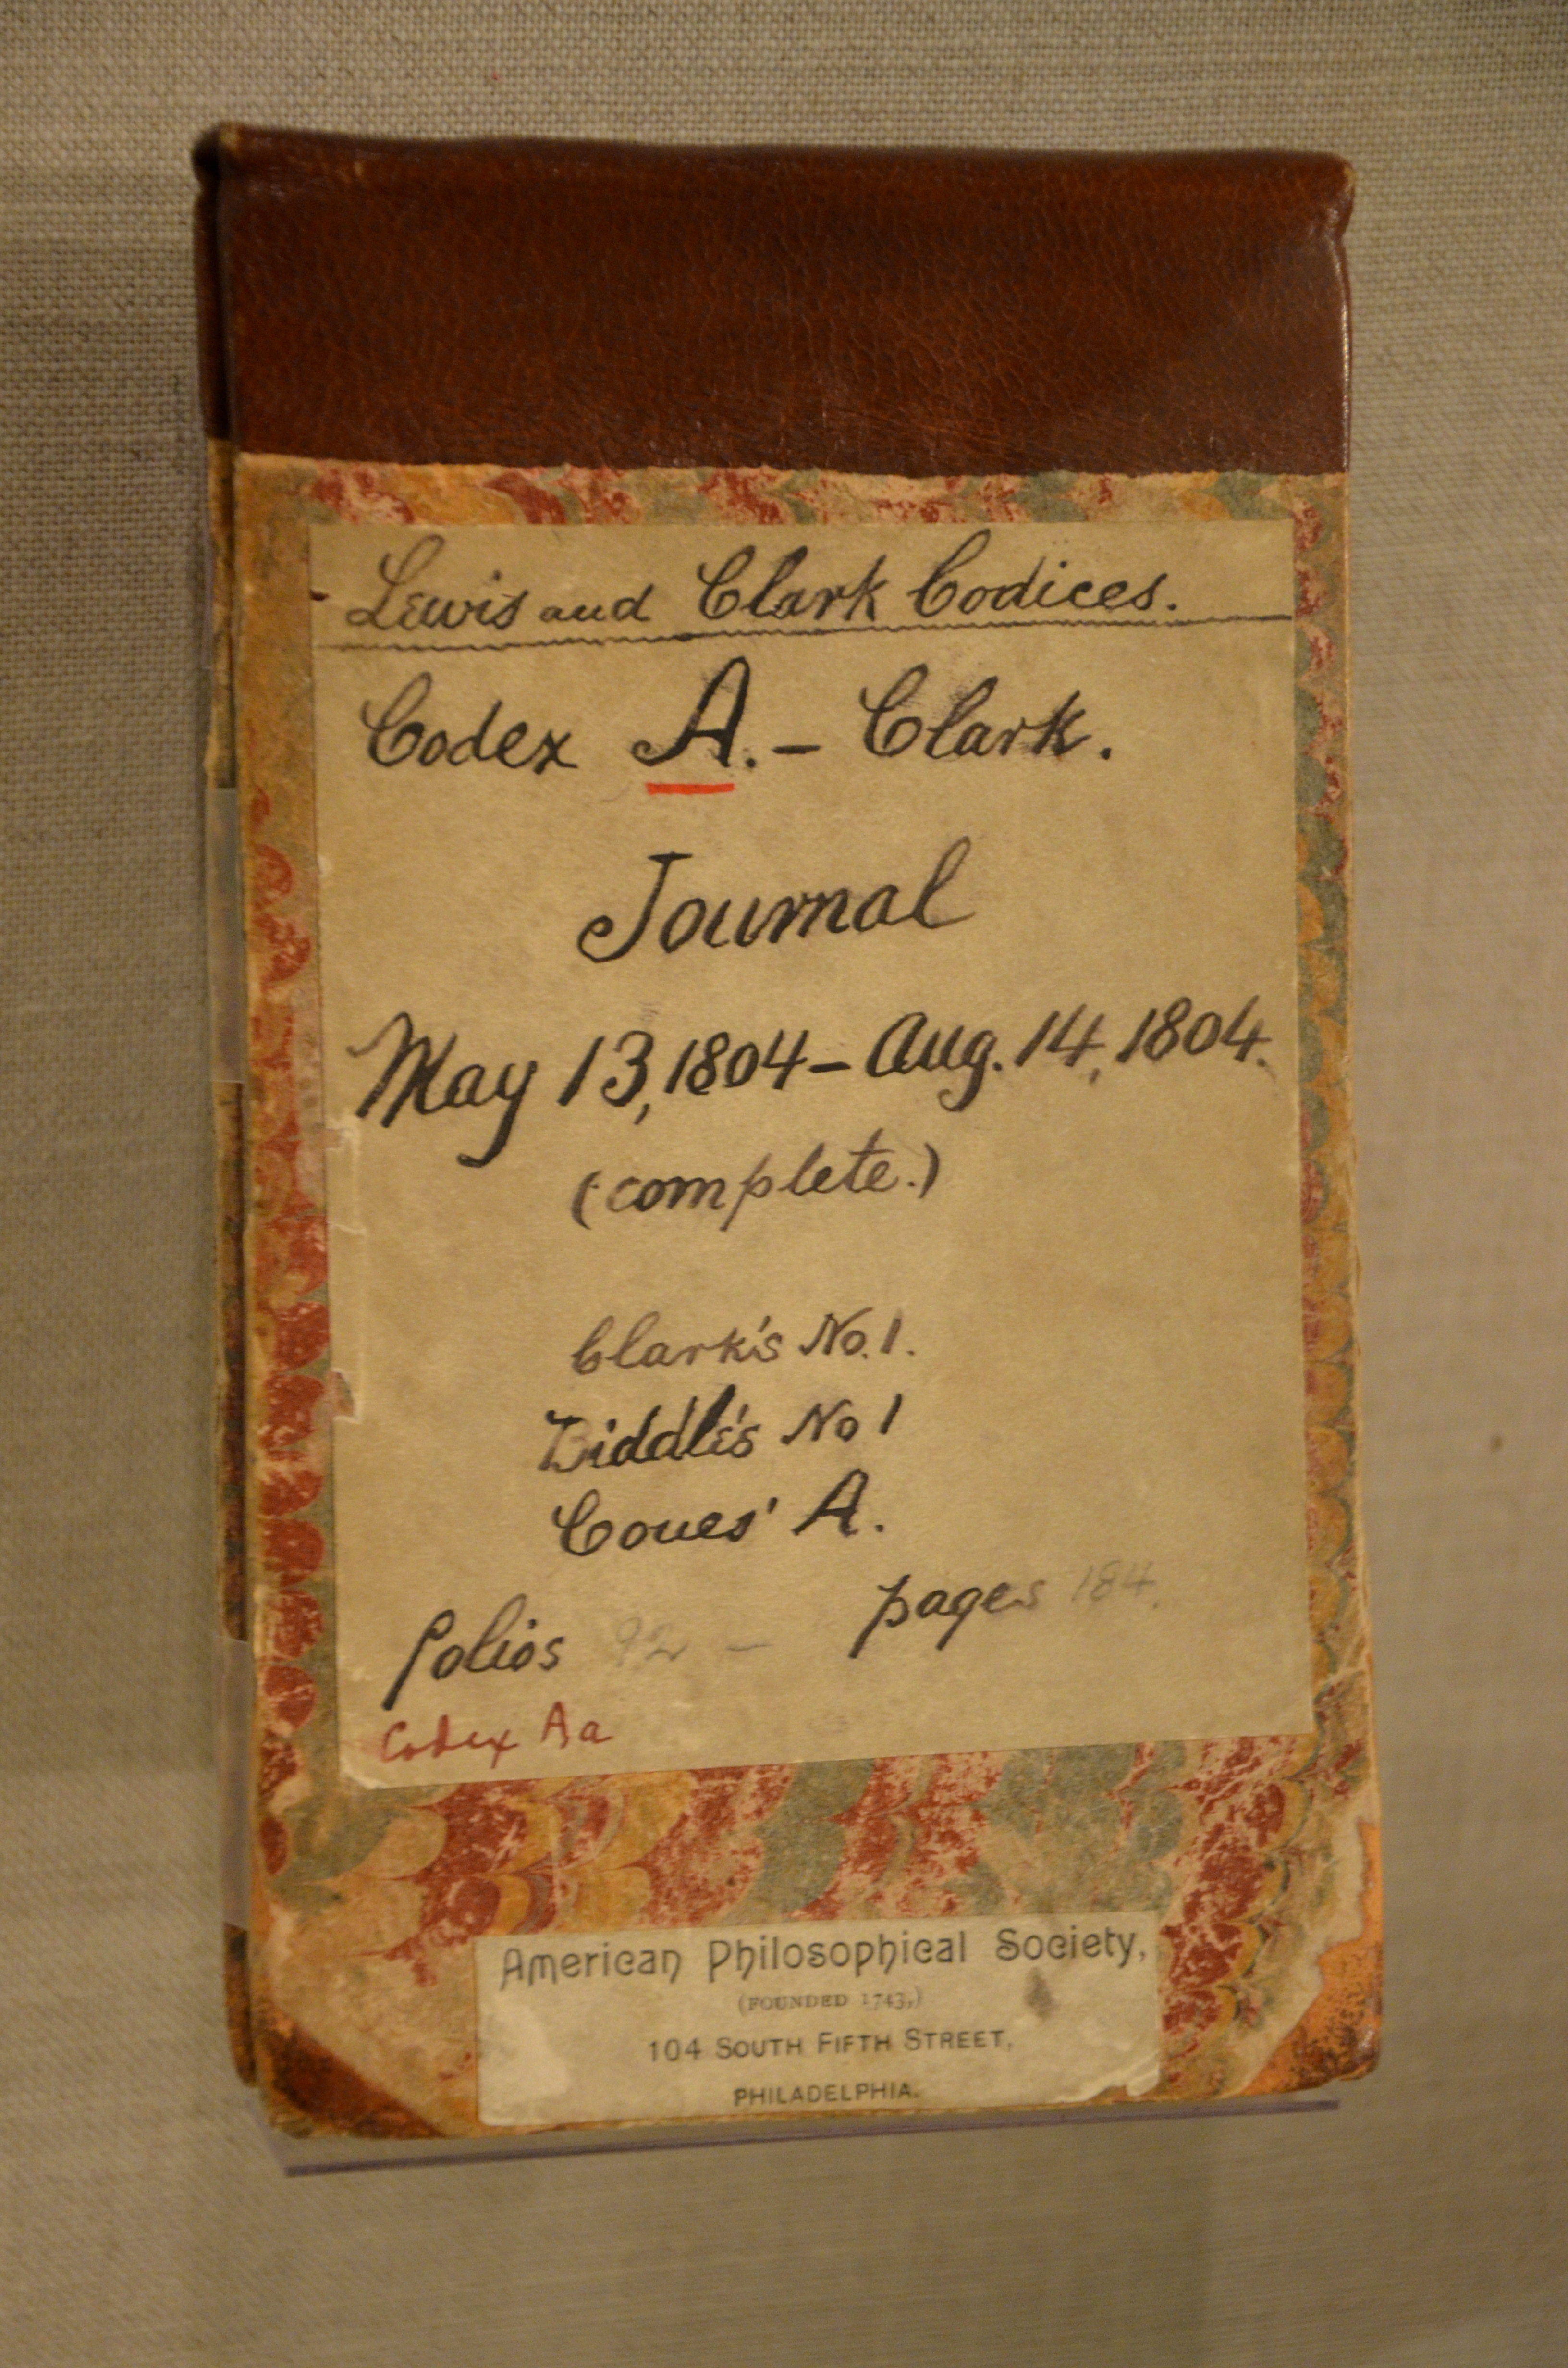 Lewis and Clark Codices.
Codex A. – Clark.
Journal
May 13, 1804 – Aug. 14, 1804.
(complete.)
Clark's No. 1.
Biddle's No 1
Coues' A.
folios 92 – pages 184.
Codex Aa
American Philosophical Society,
(FOUNDED 1743,)
104 SOUTH FIFTH STREET,
PHILADELPHIA.